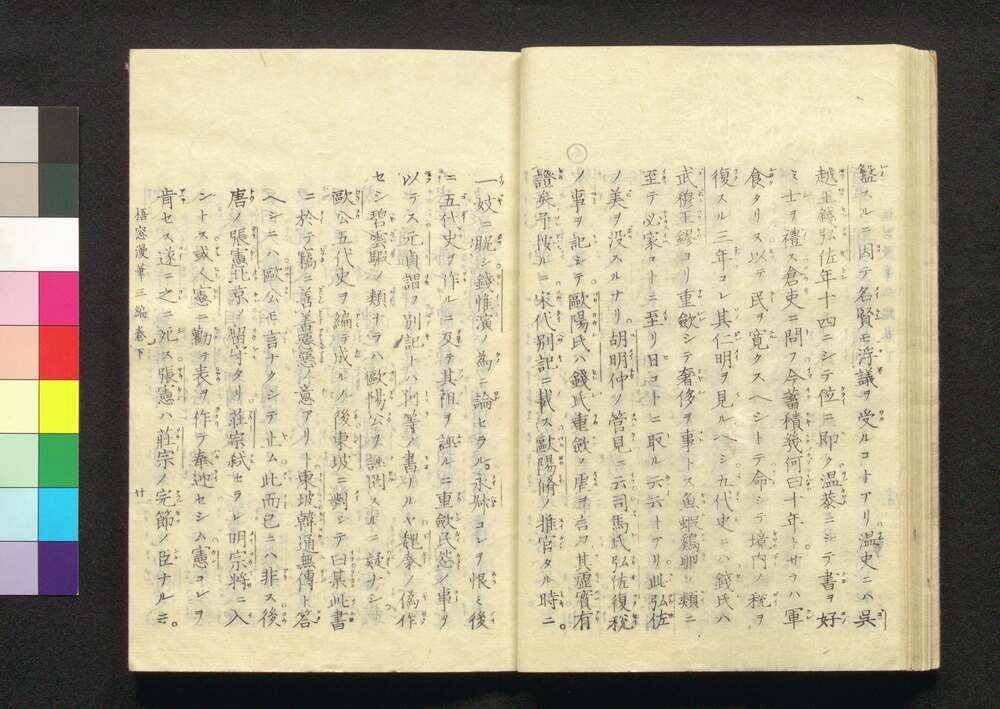 盤スルニ因テ名賢モ浮議ヲ受ルコトアリ温史ニハ呉
越王錢弘佐年十四ニシテ位ニ即ク温恭ニシテ書ヲ好
ミ士ヲ禮ス倉吏ニ問フ今蓄積幾何曰十年トサラハ軍
食タリス以テ民ヲ寛クスヘシトテ命シテ境内ノ税ヲ
復スル三年コレ其仁明ヲ見ルヘシ五代史ニハ錢氏ハ
武穆王鏐ヨリ重斂シテ奢侈ヲ事トス魚蝦鷄卵ノ類ニ
至テ必家コトニ至リ日コトニ取ル云云トアリ此弘佐
ノ美ヲ没スルナリ胡明仲ノ管見ニ云司馬氏弘佐復税
ノ事ヲ記シテ歐陽氏ハ錢氏重斂ノ虐ヲ言フ其虚實有
證矣予按ルニ宋代別記ニ載ス歐陽脩ノ推官タル時ニ
一妓ニ眤シ錢惟演ノ為ニ論セラル永叔コレヲ恨ミ後
ニ五代史ヲ作ルニ及テ其祖ヲ誣ルニ重斂民怨ノ事ヲ
以テス元

謂フ別記トハ何等ノ書ナルヤ魏泰ノ偽作
セシ碧雲騢ノ類ナラハ歐陽公ヲ誣罔スルニ疑ナシ
歐公五代史ヲ編テ成ルノ後東坡ニ對シテ曰某此書
ニ於テ竊ニ善善惡惡ノ意アリト東坡韓通無傳ト答
ヘシニハ歐公モ言ナクシテ止ム此而已ニハ非ス後
唐ノ張憲北京ノ留守タリ莊宗弑セラレ明宗將ニ入
ントス或人憲ニ勸テ表ヲ作テ奉迎セシム憲コレヲ
肯セス遂ニ之ニ死ス張憲ハ莊宗ノ完節ノ臣ナルニ
梧窓漫筆三編卷下
廿